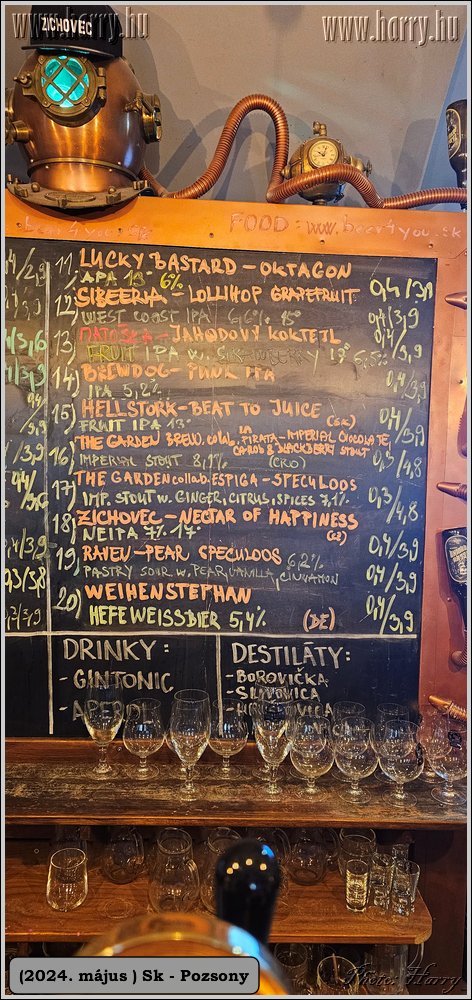 www.harry.hu
www.harry.hu
ZICHOVEC
beer4you.sk
FOOD: www.beer4you.sk
11) LUCKY BASTARD – OKTAGON
APA 13° 6% 0,4/3,1
12) SIBEERIA – LOLLIHOP GRAPEFRUIT
WEST COAST IPA 6,6% 15° 0,4/3,9
13) MATUŠKA – JAHODOVÝ KOKTEJL
FRUIT IPA W. STRAWBERRY 13° 5,5% 0,4/3,9
14) BREWDOG – PUNK IPA
IPA 5,2% 0,4/3,9
15) HELLSTORK – BEAT TO JUICE (SK)
FRUIT IPA 13° 0,4/3,9
16) THE GARDEN BREW. collab. LA PIRATA – IMPERIAL CHOCOLATE, CAROB & BLACKBERRY STOUT
IMPERIAL STOUT 8,1% (CRO) 0,3/4,8
17) THE GARDEN collab. ESPIGA – SPECULOOS
IMP. STOUT W. GINGER, CITRUS, SPICES 7,1% 0,3/4,8
18) ZICHOVEC – NECTAR OF HAPPINESS
NEIPA 7% 17° (CZ)
19) RAVEN – PEAR SPECULOOS 6,2% 0,4/3,9
PASTRY SOUR W. PEAR, VANILLA, CINNAMON 0,4/3,9
20) WEIHENSTEPHAN
HEFEWEISSBIER 5,4% (DE) 0,4/3,9
DRINKY:
- GINTONIC
- APEROL
DESTILÁTY:
- BOROVIČKA
- SLIVOVICA
(2024. május ) Sk - Pozsony
Photo: Harry